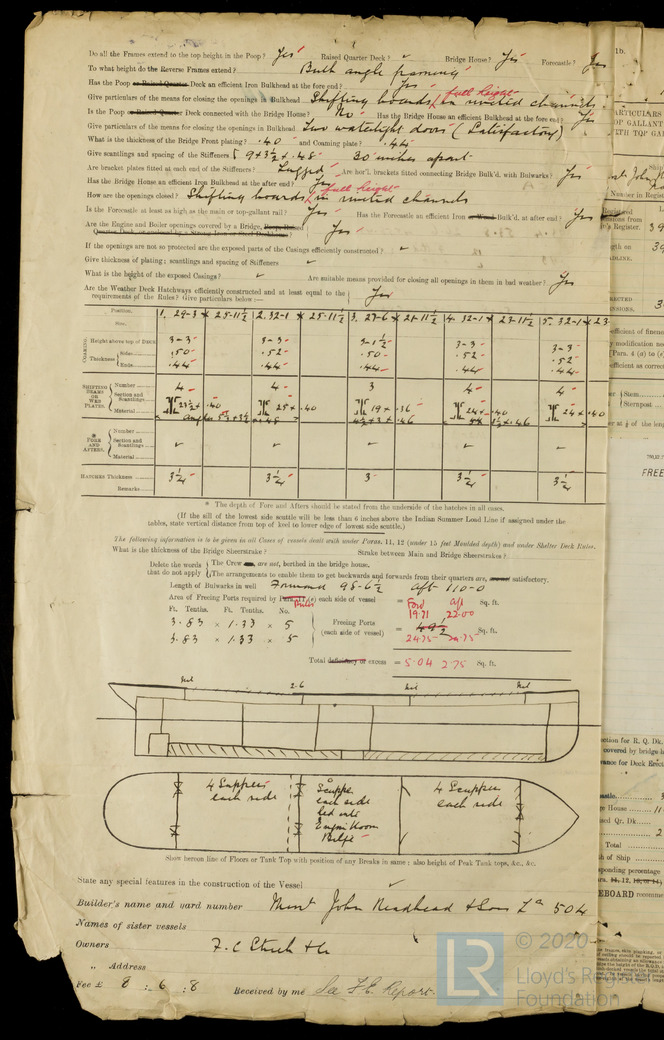 Do all the Frames extend to the top height in the Poop? Yes Raised Quarter Deck? Bridge House? Yes Forecastle? Yes
To what height do the Reverse Frames extend? Bulb angle framing
Has the Poop or Raised Quarter Deck an efficient Iron Bulkhead at the fore end? Yes
Give particulars of the means for closing the openings in Bulkhead Shifting boards full height in riveted channels
Is the Poop or Raised Quarter Deck connected with the Bridge House? No Has the Bridge House an efficient Iron Bulkhead at the fore end? Yes
Give particulars of the means for closing the openings in Bulkhead Two watertight doors (Satisfactory)
What is the thickness of the Bridge Front plating? .40 and Coaming plate? .44
Give scantlings and spacing of the Stiffeners 9 x 3½ x .48 30 inches apart
Are bracket plates fitted at each end of the Stiffeners? Lugged Are hor'l brackets fitted connecting Bridge Bulk'd. with Bulwarks? Yes
Has the Bridge House an efficient Iron Bulkhead at the after end? Yes
How are the openings closed? Shifting boards full height in riveted channels
Is the Forecastle at least as high as the main or top-gallant rail? Yes Has the Forecastle an efficient Iron or Wood Bulk'd. at after end? Yes
Are the Engine and Boiler openings covered by a Bridge, Poop, Raised
Quarter Deck, or enclosed by a Strong Iron or Steel Deckhouse? Yes
If the openings are not so protected are the exposed parts of the Casings efficiently constructed?
Give thickness of plating; scantlings and spacing of Stiffeners
What is the height of the exposed Casings? Are suitable means provided for closing all openings in them in bad weather? Yes
Are the Weather Deck Hatchways efficiently constructed and at least equal to the
requirements of the Rules? Give particulars below:— Yes
Position. 1. 29-3 x 25-11½ 2. 32-1 x 25-11½ 3. 27-6 x 21-11½ 4. 32-1 x 27-11½ 5. 32-1 x 23
Size.
COAMING Height above top of Deck 3-3 3-3 3-1½ 3-3 3-3
Thickness Sides .50 .52 .50 .52 .52
Ends .44 .44 .44 .44 .44
SHIFTING BEAMS OR WEB PLATES Number 4 4 3 4 4
Section and Scantlings 23½ x .40 25 x .40 19 x .36 24 x .40 24 x .40
Material
FORE AND AFTERS. Number
Section and Scantlings
Material
HATCHES Thickness 3½ 3½ 3 3½ 3½
Remarks
* The depth of Fore and Afters should be stated from the underside of the hatches in all cases.
(If the sill of the lowest side scuttle will be less than 6 inches above the Indian Summer Load Line if assigned under the
tables, state vertical distance from top of keel to lower edge of lowest side scuttle.)
The following information is to be given in all Cases of vessels dealt with under Paras. 11, 12 (under 15 feet Moulded depth) and under Shelter Deck Rules.
What is the thickness of the Bridge Sheerstrake? Strake between Main and Bridge Sheerstrakes?
Delete the words that do not apply
The Crew are, are not, berthed in the bridge house.
The arrangements to enable them to get backwards and forwards from their quarters are, are not satisfactory.
Length of Bulwarks in well Forward 98-6½ aft 110-0
Area of Freezing Ports required by Rules each side of vessel = Ford 19.71 aft 22.00 Sq. ft.
Ft. Tenths. Ft. Tenths. No.
3.83 x 1.33 x 5
3.83 x 1.33 x 5
Freeing Ports (each side of vessel) = 24.75 24.75 Sq. ft.
Total deficiency or excess = 5.04 2.75 Sq. ft.
2-6
4 Scuppers each side
Scupper each side led into Engine Room Bilge
4 Scuppers each side
Show hereon line of Floors or Tank Top with position of any Breaks in same; also height of Peak Tank tops, &c., &c.
State any special features in the construction of the Vessel
Builder's name and yard number Messrs John Readhead & Sons Ld 504
Names of sister vessels
Owners F. C Strick & Co
„ Address
Fee £ 8 : 6 : 8 Received by me See F.E. Report.
© 2020
Lloyd's Register
Foundation
LR